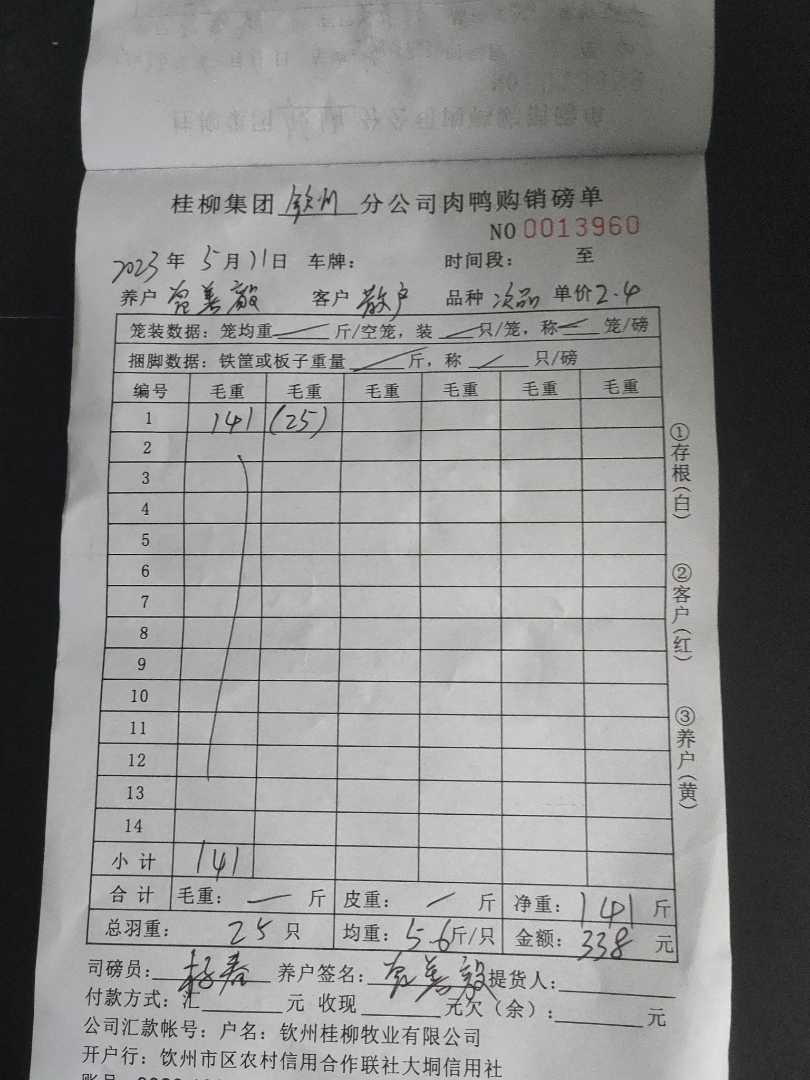 桂柳集团 钦州 分公司肉鸭购销磅单
NO 0013960
2023 年 5 月 21 日 车牌： 时间段： 至
养户 善毅 客户 散户 品种 次品 单价 2.4
笼装数据：笼均重 斤/空笼，装 只/笼，称 笼/磅
捆脚数据：铁筐或板子重量 斤，称 只/磅
编号 毛重 毛重 毛重 毛重 毛重 毛重
1 141 (25)
2
3
4
5
6
7
8
9
10
11
12
13
14
小计 141
合计 毛重： 斤 皮重： 斤 净重：141 斤
总羽重： 25 只 均重：5.6 斤/只 金额：338 元
司磅员： 养户签名： 善毅 提货人：
付款方式：汇 元 收现 元欠（余）： 元
公司汇款帐号：户名：钦州桂柳牧业有限公司
开户行：饮州市区农村信用合作联社大垌信用社
①存根（白） ②客户（红） ③养户（黄）